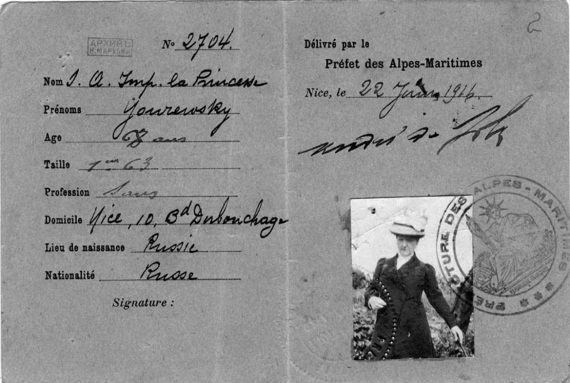 АРХИВЪ
№ 2704.
Nom S. A. Imp. la Princesse
Prénoms Yourewsky
Age ans
Taille 1m 63
Profession Sans
Domicile Nice, 10, Bd Dubouchage
Lieu de naissance Russie
Nationalité Russe
Signature :
2
Délivré par le
Préfet des Alpes-Maritimes
Nice, le 22 1916
PRÉFECTURE DES ALPES-MARITIMES